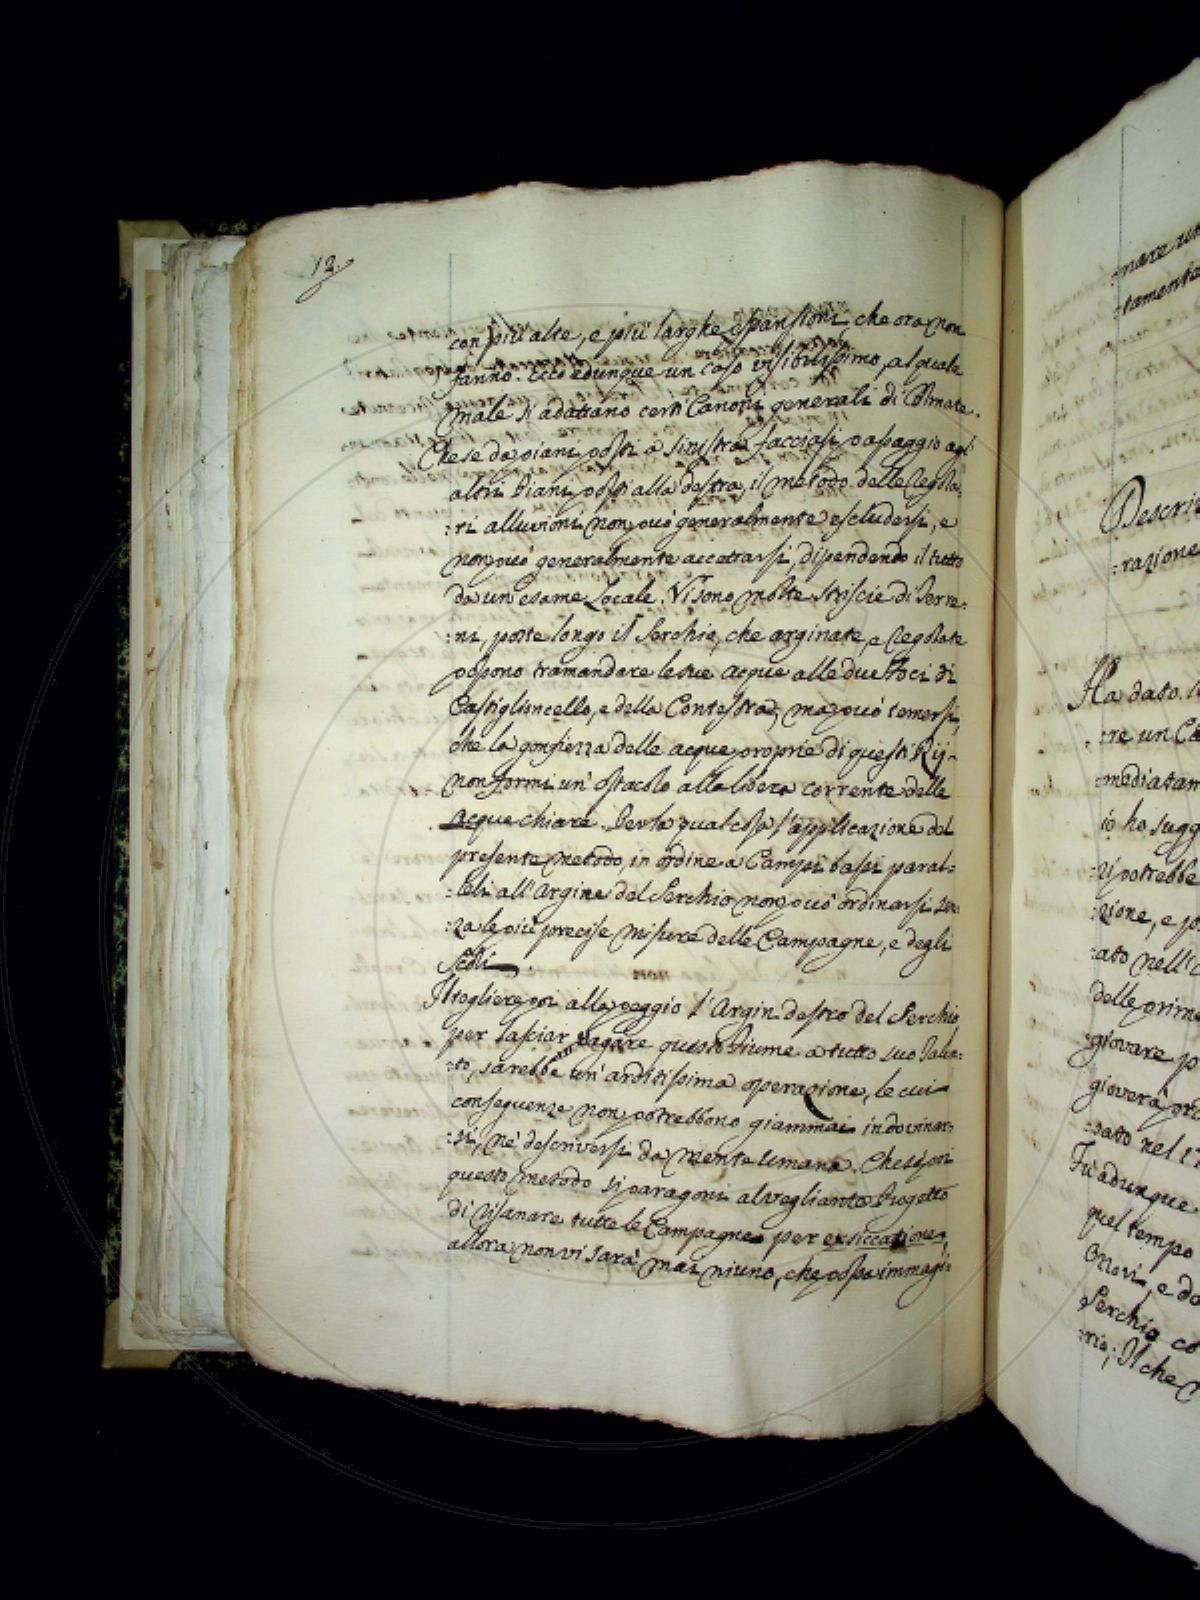 12.
con più alte, e più larghe espansioni, che ora non
fanno. Ecco adunque un caso visibilissimo, al quale
male si adattano certi Canoni generali di Colmate.
Che se da piani posti a sinistra facciasi passaggio agl'
altri Piani posti alla destra, il metodo delle regola-
:ri alluvioni non può generalmente escludersi, e
non può generalmente accettarsi, dipendendo il tutto
da un esame Locale. Vi sono molte striscie di Terre-
:ni, poste longo il Serchio, che arginate, e regolate
possono tramandare le sue acque alle due Foci di
Castiglioncello, e della Contessora, ma può temersi,
che la gonfiezza delle acque proprie di questi Rij
non formi un' ostacolo alla libera corrente delle
acque chiare. Per la qual cosa l'applicazione del
presente metodo, in ordine a Campi bassi paral-
:leli all'Argine del Serchio non può ordinarsi sen-
:za le più precise misure delle Campagne, e degli
Scoli.
Il togliere poi alla peggio l'Argin destro del Serchio
per lasciar vagare questo Fiume a tutto suo Talen-
:to, sarebbe un' arditissima operazione, le cui
conseguenze non potrebbono giammai indovinar-
:si, nè descriversi da mente umana. Che se poi
questo metodo si paragoni al vegliante Progetto
di risanare tutte le Campagne per exsiccationem,
allora non vi sarà mai niuno, che possa immagi-
:nare un
:tamente
Descriz
:razione
Ha dato
:re un Ca
:mediatam
io ho sugg
potrebbe
:zione, e
:ato nell'
delle prime
giovare p
gioverà
:sato nel 17
Fù adunque
quel tempo
e da
Serchio co
Il che